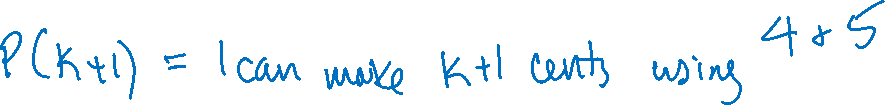 P(k+1) = I can make k+1 cents using 4 & 5